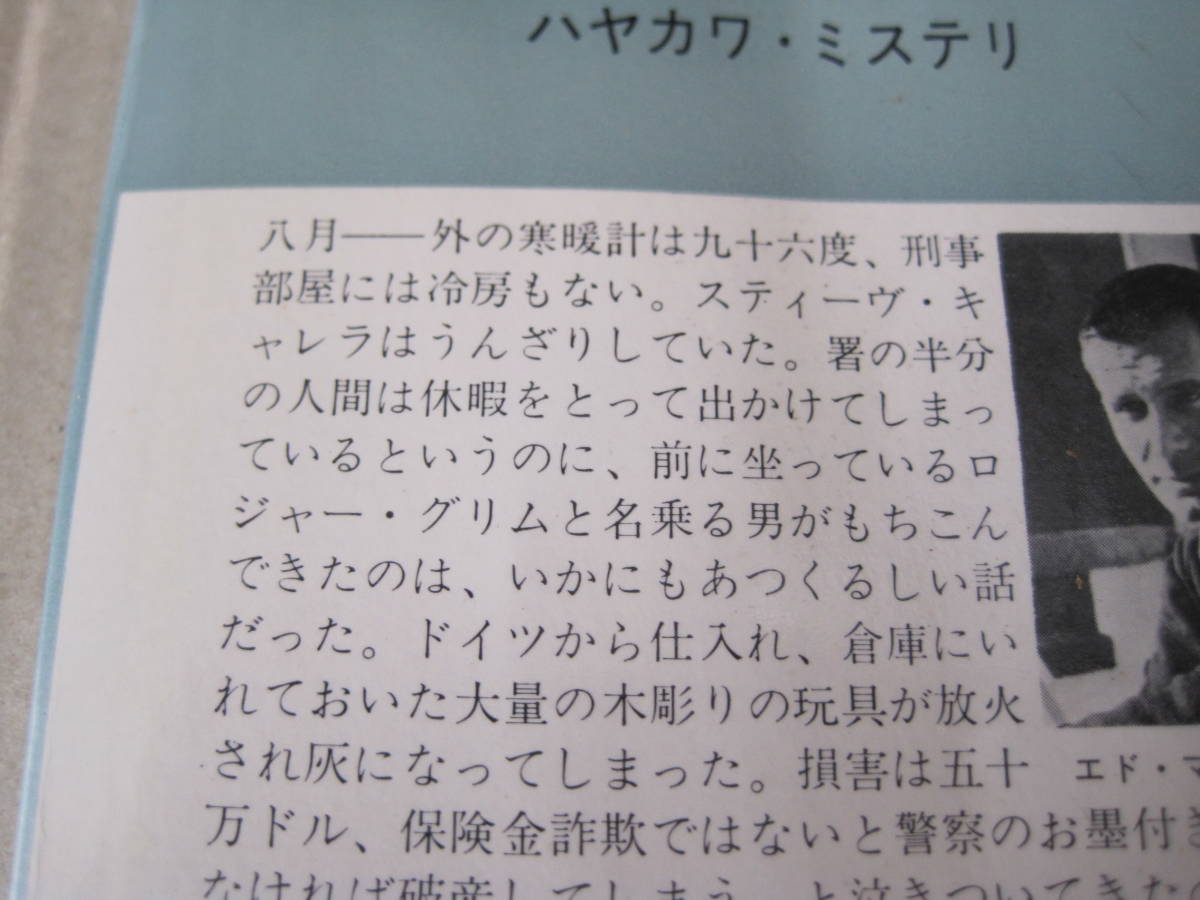 ハヤカワ・ミステリ
八月――外の寒暖計は九十六度、刑事
部屋には冷房もない。スティーヴ・キ
ャレラはうんざりしていた。署の半分
の人間は休暇をとって出かけてしまっ
ているというのに、前に坐っているロ
ジャー・グリムと名乗る男がもちこん
できたのは、いかにもあつくるしい話
だった。ドイツから仕入れ、倉庫にい
れておいた大量の木彫りの玩具が放火
され灰になってしまった。損害は五十
万ドル、保険金詐欺ではないと警察のお墨付き
なければ破産してしまう、と泣きついてきたの
エド・マ